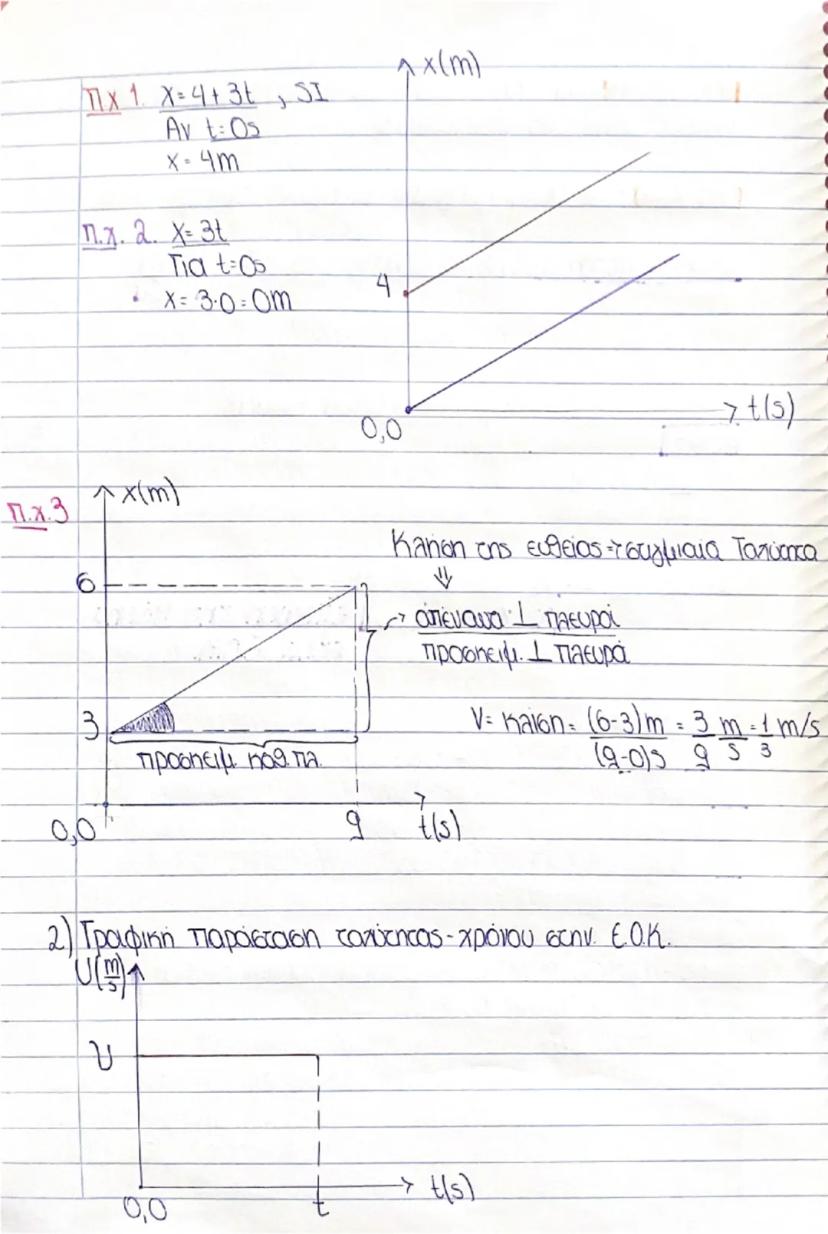 Πχ 1. x=4+3t , SI
Αν t=0s
x=4m
x(m)
4
0,0
t(s)
π.χ. 2. x=3t
Για t=0s
x=3·0=0m
π.χ.3
x(m)
6
3
0,0
9
t(s)
προσκειμ καθ.πλ.
Κλίση της ευθείας→στιγμιαία Ταχύτητα
⇓
→ απέναντι ⊥ πλευρά
προσκειμ. ⊥ πλευρά
V= κλίση= (6-3)m/(9-0)s = 3/9 m/s = 1/3 m/s
2) Γραφική παράσταση ταχύτητας-χρόνου στην Ε.Ο.Κ.
U(m/s)
υ
0,0
t
t(s)